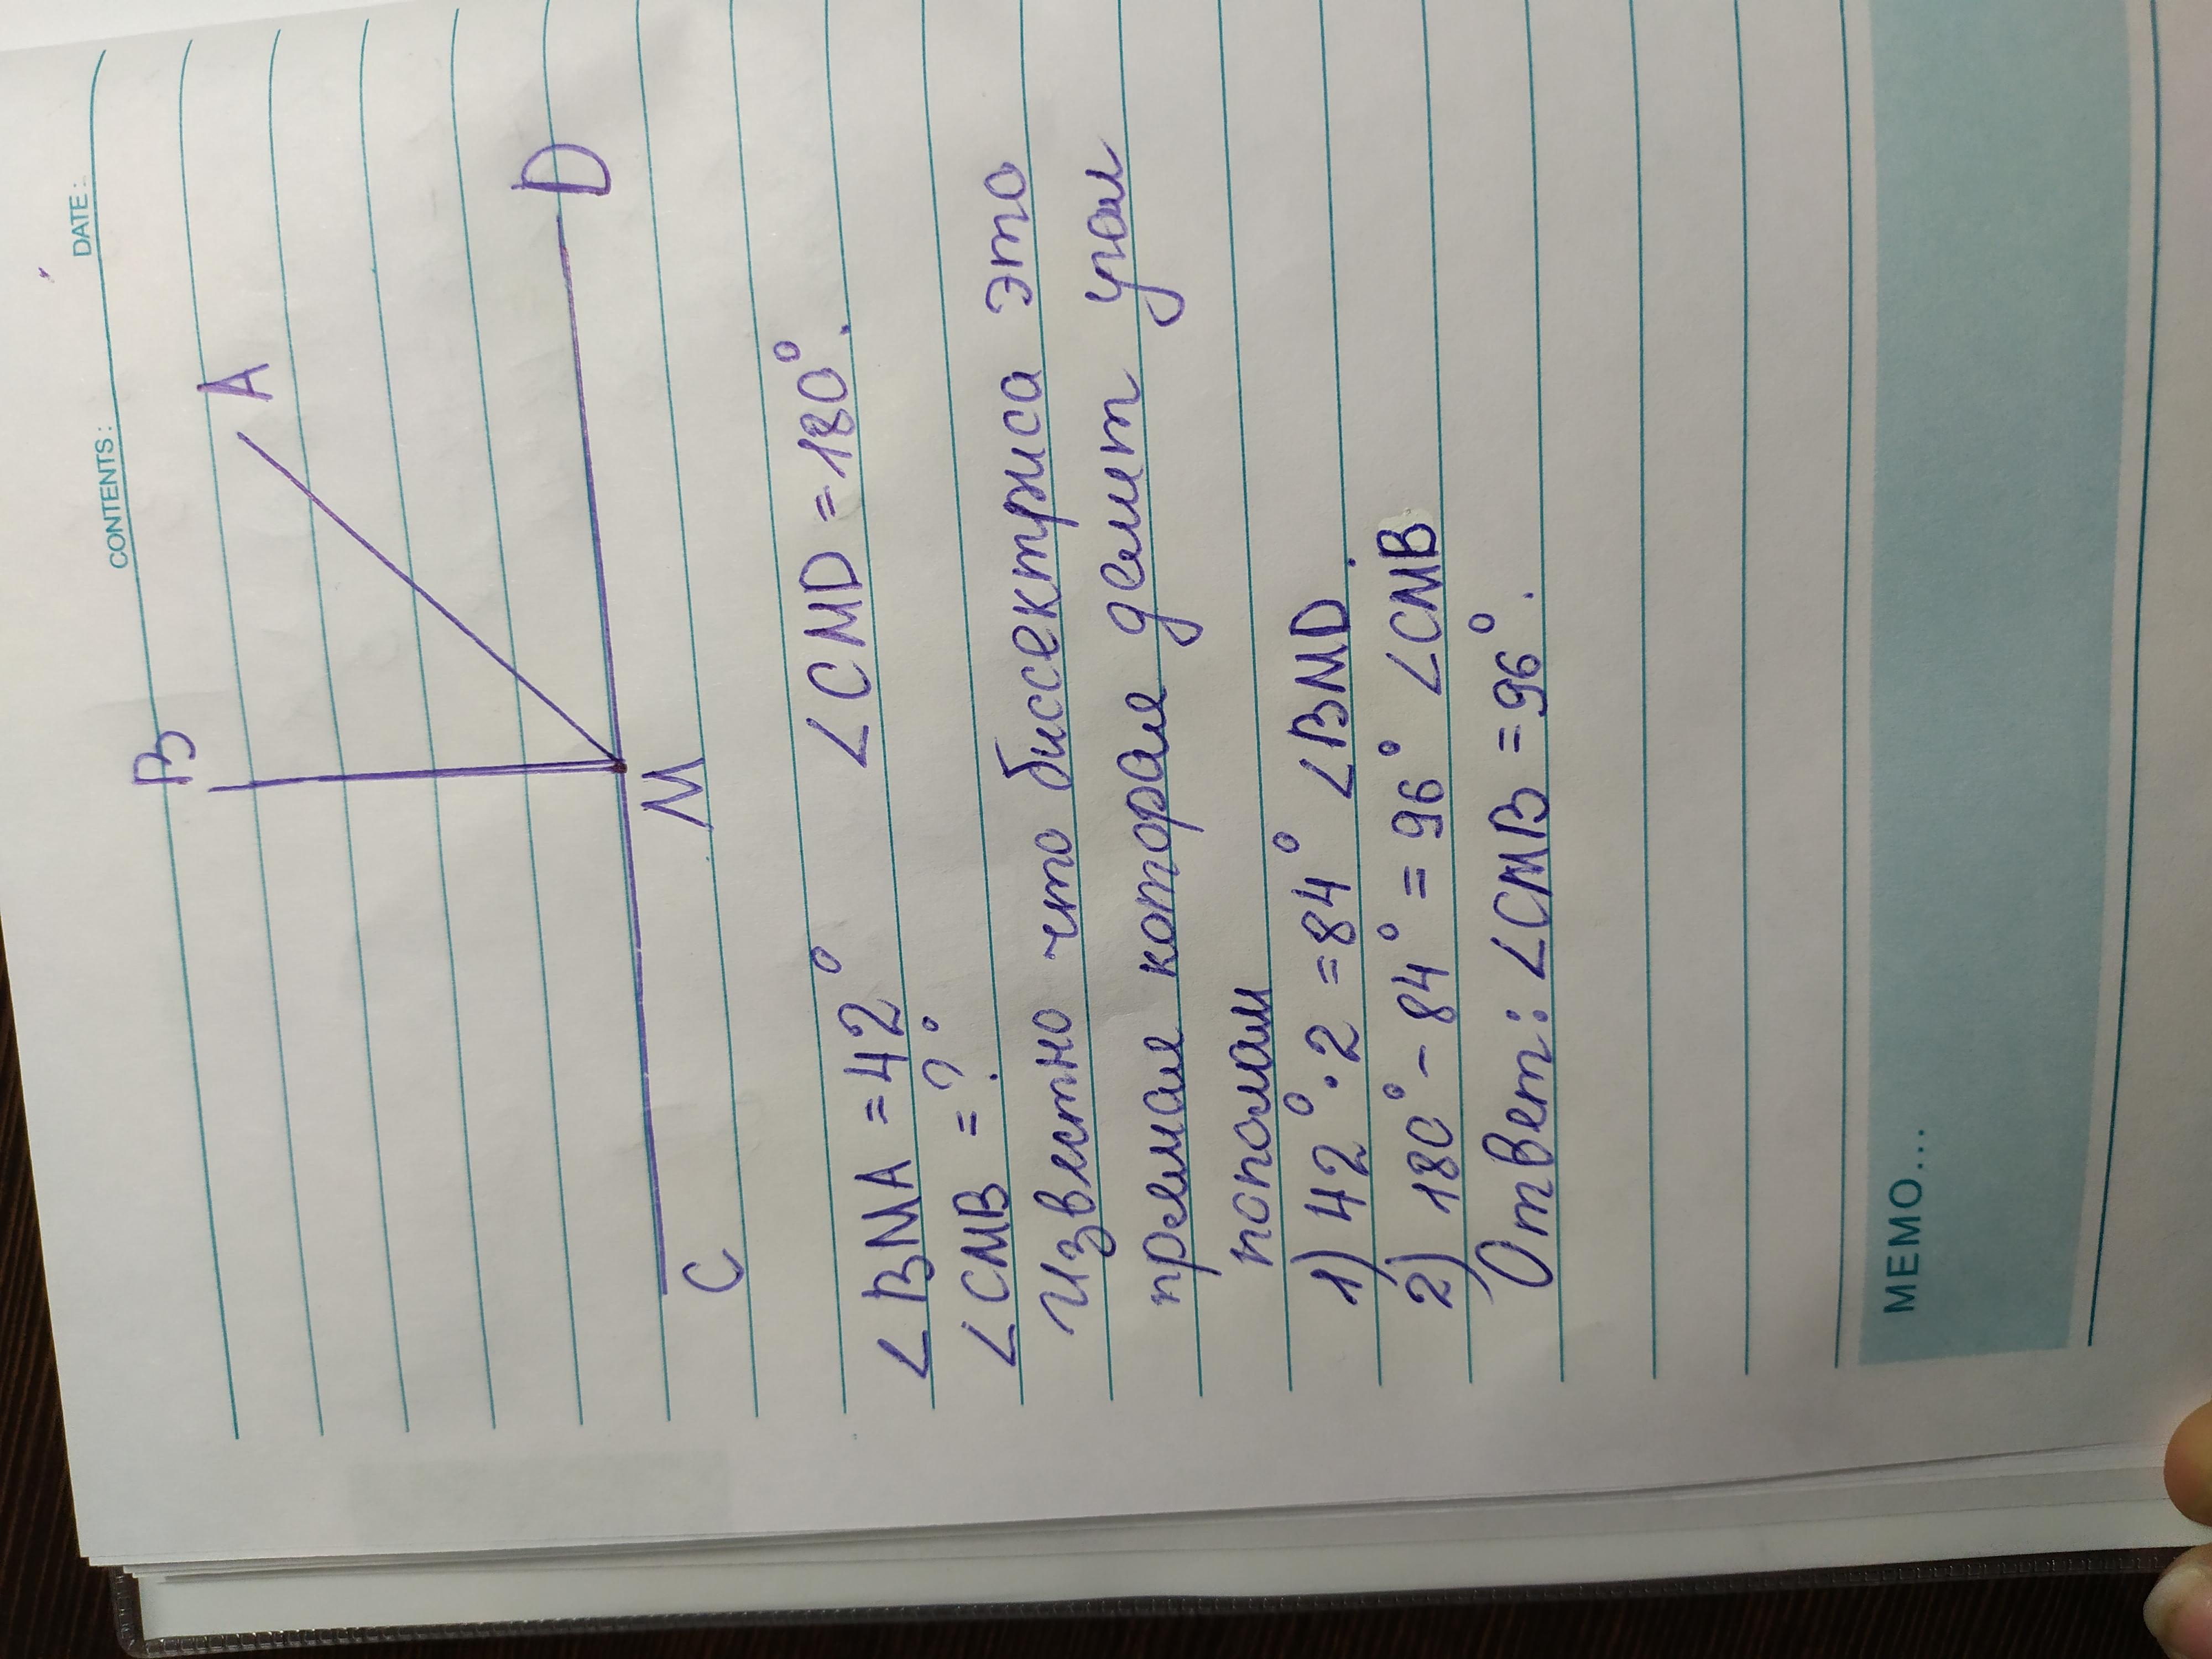 CONTENTS: DATE:
B A
D
M
C
∠BMA = 42° ∠CMD = 180°.
∠CMB = ?°
Известно что биссектриса это
премая которая делит угол
пополам
1) 42° · 2 = 84° ∠BMD.
2) 180° - 84° = 96° ∠CMB
Ответ: ∠CMB = 96°.
MEMO...